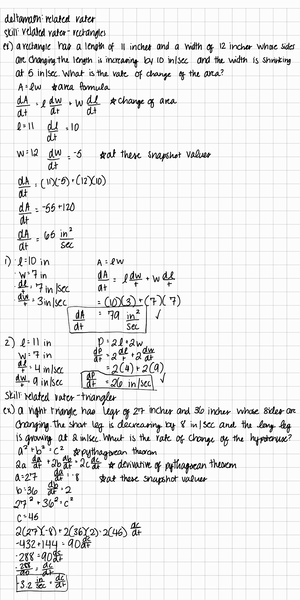 deltamath: related rates
skill: related rates - rectangles
ex) a rectangle has a length of 11 inches and a width of 12 inches whose sides
are changing. the length is increasing by 10 in/sec and the width is shrinking
at 5 in/sec. What is the rate of change of the area?
A = lw ☆ area formula
dA/dt = l dw/dt + w dl/dt ☆ change of area
l = 11 dl/dt = 10
w = 12 dw/dt = -5 ☆ at these snapshot values
dA/dt = (11)(-5) + (12)(10)
dA/dt = -55 + 120
dA/dt = 65 in²/sec
1) l = 10 in A = lw
w = 7 in dA/dt = l dw/t + w dl/t
dl/t = 7 in/sec
dw/t = 3 in/sec = (10)(3) + (7)(7)
dA/dt = 79 in²/sec ✓
2) l = 11 in P = 2l + 2w
w = 7 in dP/dt = 2 dl/t + 2 dw/dt
dl/t = 4 in/sec = 2(4) + 2(9)
dw/t = 9 in/sec dP/dt = 26 in/sec ✓
skill: related rates - triangles
ex) a right triangle has legs of 27 inches and 36 inches whose sides are
changing. The short leg is decreasing by 8 in/sec and the long leg
is growing at 2 in/sec. What is the rate of change of the hypotenuse?
a² + b² = c² ☆ pythagorean theorem
2a da/dt + 2b db/dt = 2c dc/dt ☆ derivative of pythagorean theorem
a = 27 da/dt = -8 ☆ at these snapshot values
b = 36 db/dt = 2
27² + 36² = c²
c = 45
2(27)(-8) + 2(36)(2) = 2(45) dc/dt
-432 + 144 = 90 dc/dt
-288 = 90 dc/dt
-288/90 = dc/dt
-3.2 in/sec = dc/dt